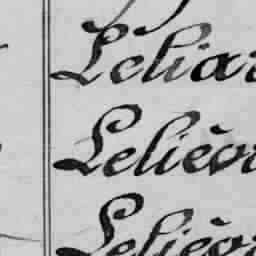 Leliar
Lelièvr
Lelièvr